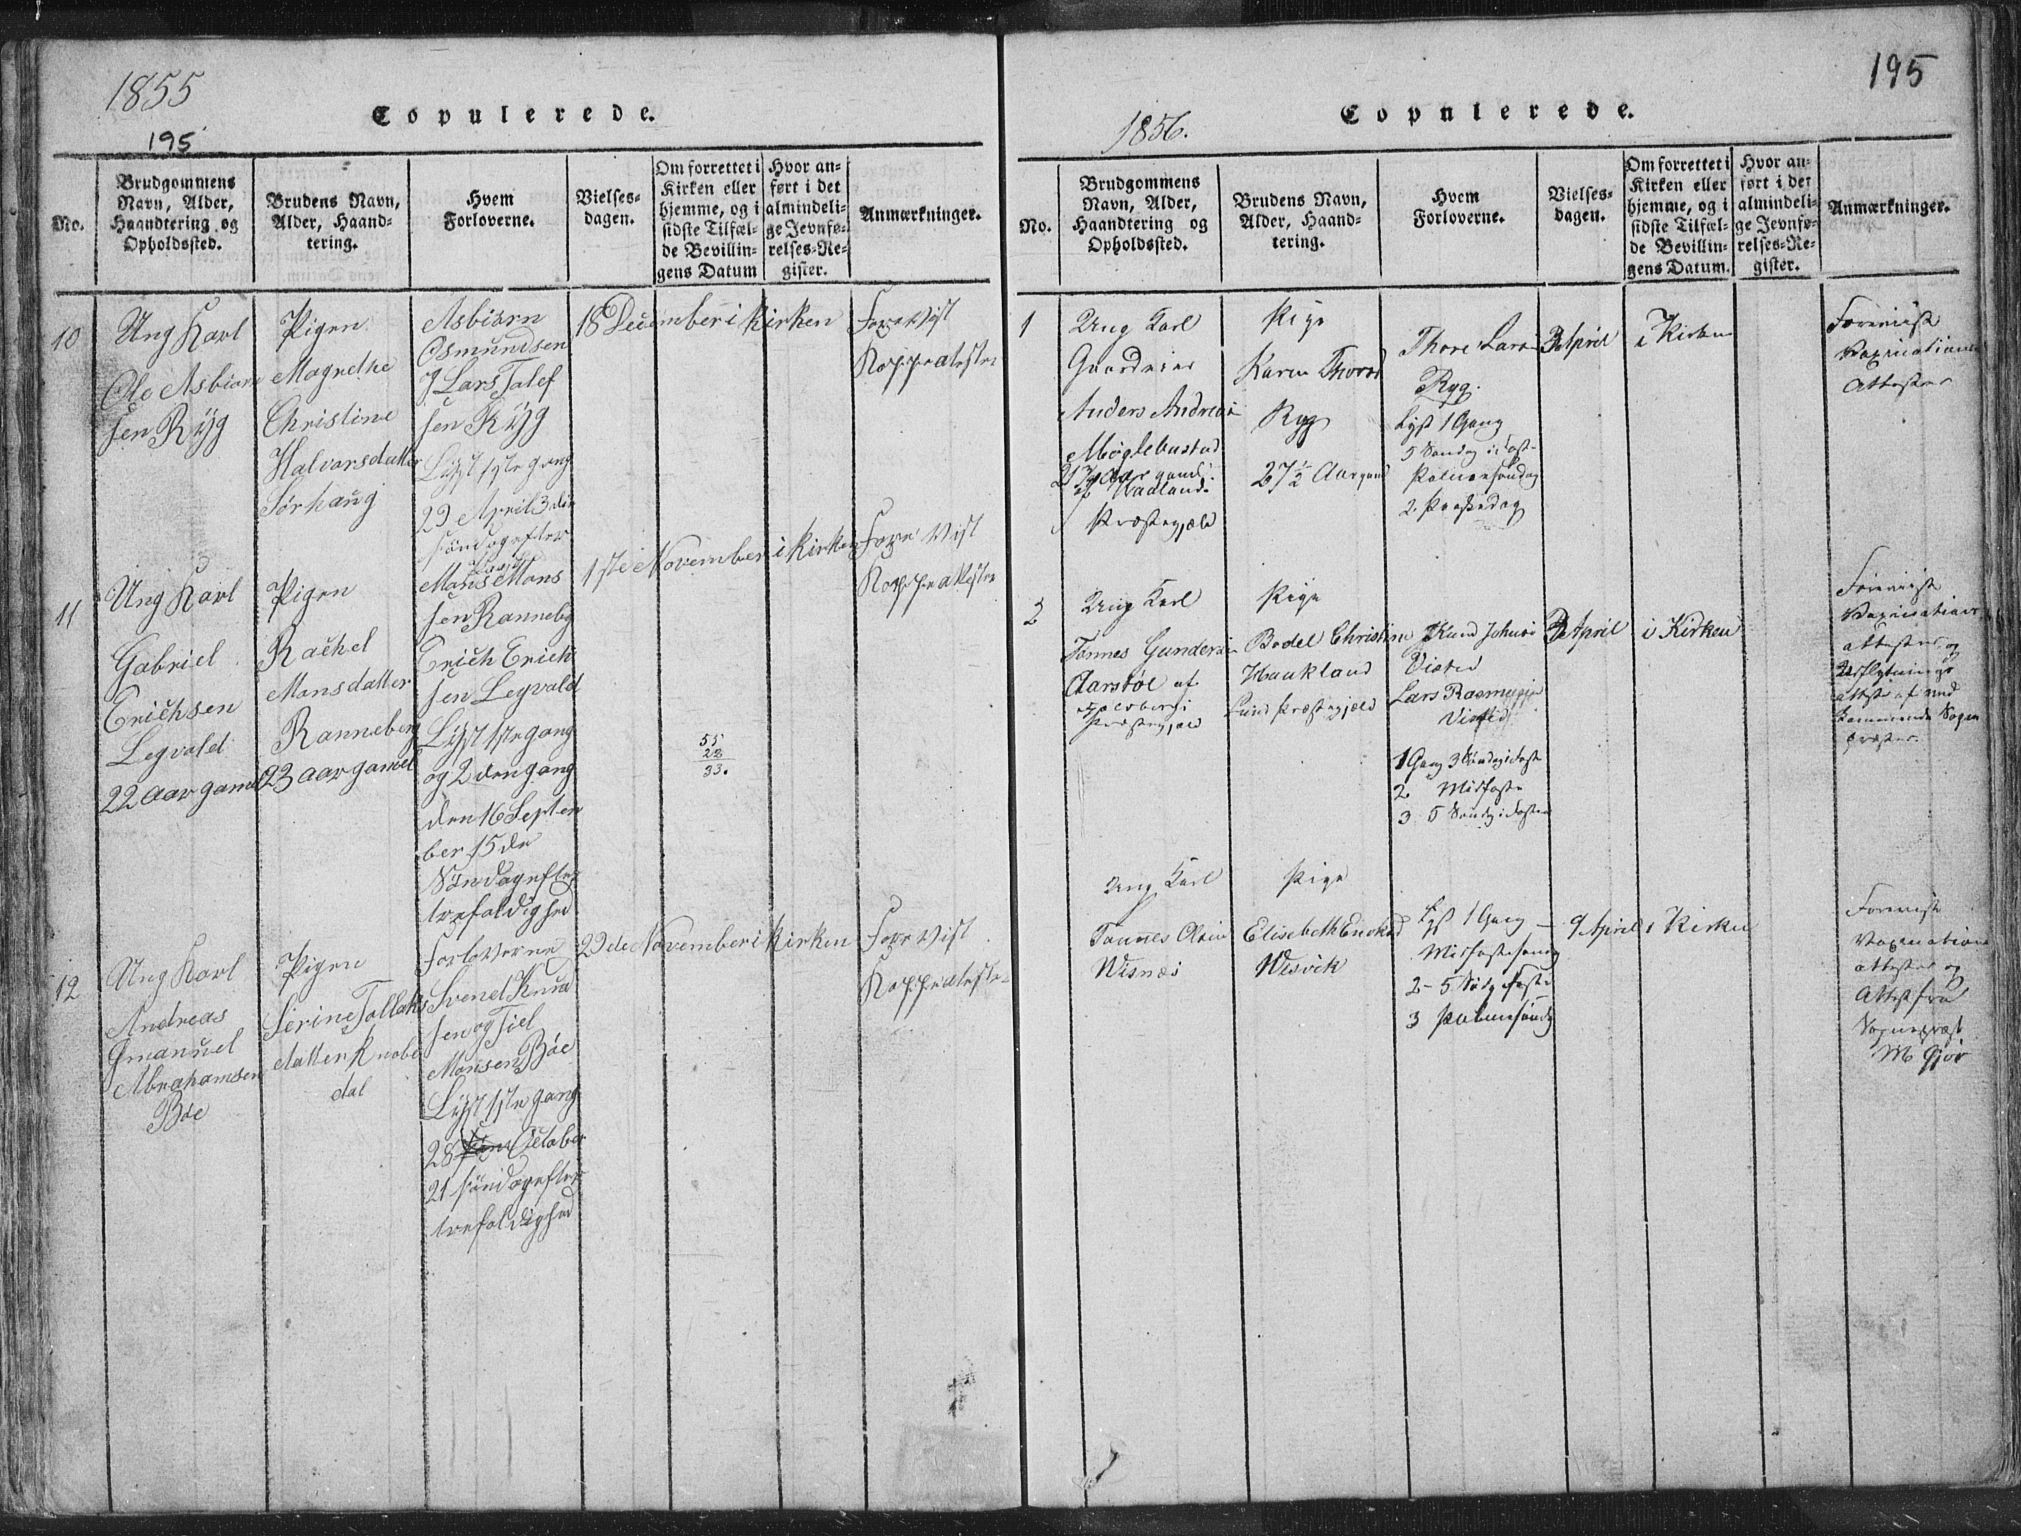 1855
195
Copulerede.
No.
Brudgommens
Navn, Alder,
Haandtering og
Opholdssted.
Brudens Navn,
Alder, Haand-
tering.
Hvem
Forloverne.
Vielses-
dagen.
Om forrettet i
Kirken eller
hjemme, og i
sidste Tilfæl-
de Bevillin-
gens Datum
Hvor an-
ført i det
almindeli-
ge Jevnfø-
relses-Re-
gister.
Anmærkninger.
10
Ung Karl
Ole Asbiørn
sen Ryg
Pigen
Magrethe
Christine
Halvorsdatter
Sørhaug
Asbiørn
Osmundsen
Lars Talef
sen Ryg
Lyst 1ste gang
29 April 3die
søndagefter
18 December i Kirken
Forevist
Koppeatester
11
Ung Karl
Gabriel
Erichsen
Legvald
22 aar gamel
Pigen
Rachel
Monsdatter
Ranneberg
23 aar gamel
Mons Mons
sen Ranneberg
Erich Erich
sen Legvald
Lyst 1ste gang
og 2den gang
den 16 Septem
ber 15de
Søndagefter
trefoldighed
1ste November i Kirken
55
22
33.
Fore Vist
Koppeatester
12
Ung Karl
Andreas
Emanuel
Abrahamsen
Bøe
Pigen
Serine Tollaks
datter Knobe
dal
Forloverne
Svend Knud
sen og Tiel
Monsen Bøe
Lyst 1ste gang
28 October
21 søndagefter
trefoldighed
29de November i Kirken
Fore Vist
Koppeatester
195
1856.
Copulerede.
No.
Brudgommens
Navn, Alder,
Haandtering og
Opholdssted.
Brudens Navn,
Alder, Haand-
tering.
Hvem
Forloverne.
Vielses-
dagen.
Om forrettet i
Kirken eller
hjemme, og i
sidste Tilfæl-
de Bevillin-
gens Datum.
Hvor an-
ført i det
almindeli-
ge Jevnfø-
relses-Re-
gister.
Anmærkninger.
1
Ung Karl
Gaardeier
Anders Andreas
Møglebustad
Præstegjæld
Pige
Karen Thores
Ryg
27½ Aar gaml
Thore Lars
Ryg.
Lyst 1 Gang
5 Søndag i Faste
Palmesøndag
2 Paaskedag
3 April
i Kirken
Forevist
Vaxinations
Attester
2
Ung Karl
Tønnes Gunders
Aarstøl af
Præstegjæld
Pige
Bodel Christine
Haakland
Lund Præstegjæld
Knud Johns
Visted
Lars Rasmusen
Visted
1 Gang 3 Søndag i Faste
2 Midfaste
3 5 Søndg i Fasten
3 April
i Kirken
Forevist
Vaxinations
attester og
Udflytnings
attest af ved
kommende Sogne
præster.
Ung Karl
Tønnes Olsen
Wisnæs
Pige
Elisebeth
Wisvik
Lyst 1 Gang
Midfastesøndg
2 – 5 Søndg Faste
3 Palmesøndg
9 April
i Kirken
Forevist
Vaxinations
attester og
Attest fra
Sognepræst